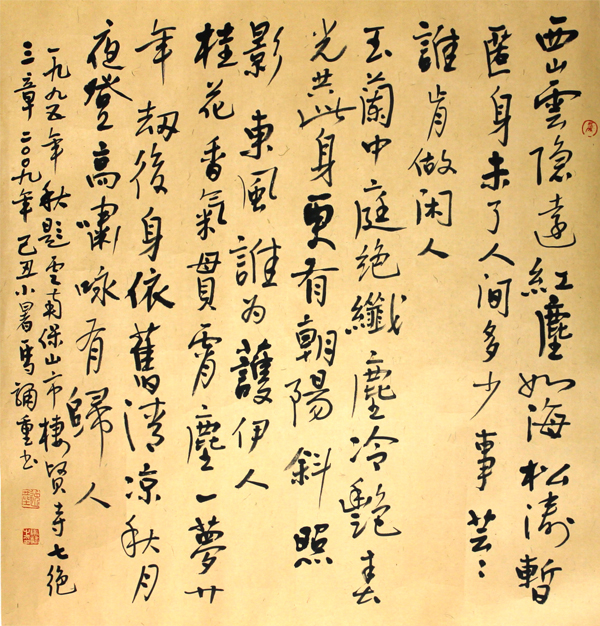 西山雲隐遠紅塵如海松濤暫
匿身未了人间多少事芸〻
誰肯做闲人
玉蘭中庭绝纖塵冷艷春
光共此身更有朝陽斜照
影東風誰为護伊人
桂花香氣貫霄塵一夢廿
年刼後身依舊清凉秋月
夜登高嘯咏有歸人
一九九五年秋题云南保山市棲贤寺七绝
三章二〇〇九年己丑小暑馬誦重书